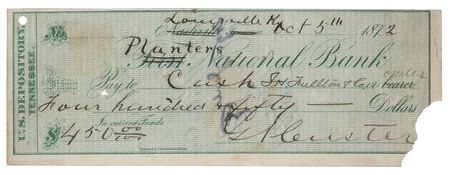 Louisville Ky Oct 5th 1872
Nashville
Planters
First National Bank
Pay to Cash or bearer order
Four hundred & fifty — Dollars
In current Funds
$450 00/100 G A Custer
U.S. DEPOSITORY,
TENNESSEE.